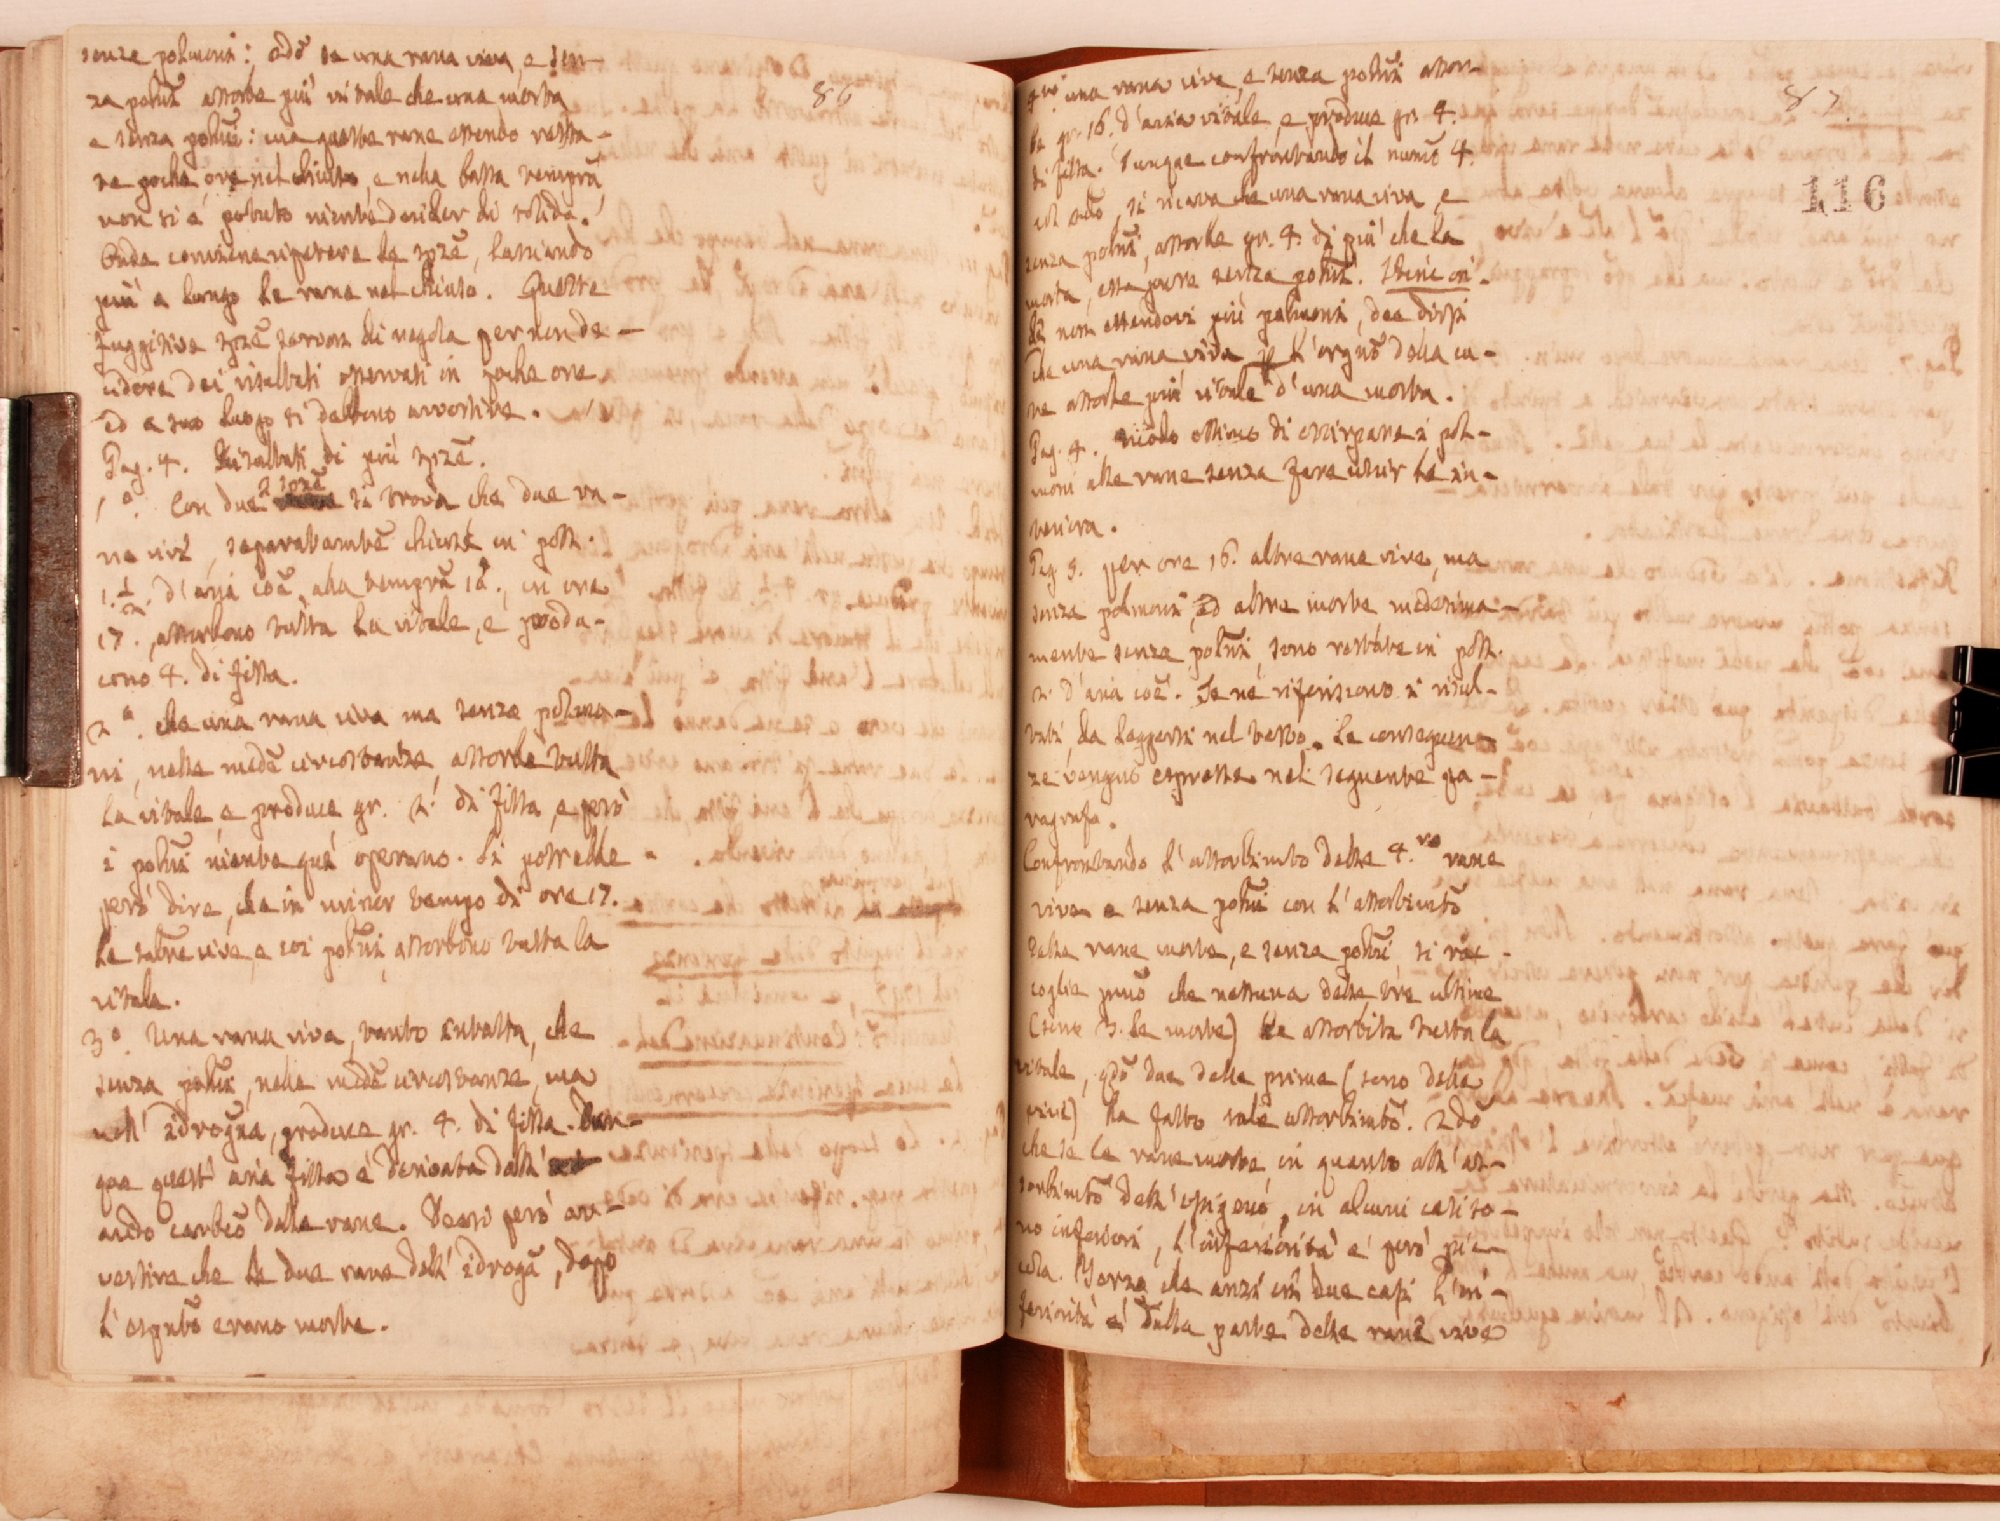 senze polmoni: 2do se una rana viva, e sen-
za polm̃i assorbe più vitale che una morta
e senza polm̃i: ma queste rane essendo resta-
te poche ore nel chiuso, e nella bassa temprã
non si è potuto niente decider di solido.
Onde conviene ripetere le sp̃ze, lasciando
più a lungo le rane nel chiuso. Queste
fuggitive sp̃ze servon di regola per ricrede-
dei risultati osservati in poche ore
ed a suo luogo si debbono avvertire.
86
Pag. 4. Risultati di più sp̃ze.
1.° Con due sp̃ze si trova che due ra-
ne vive, separatam̃te chiuse in poll.
1.½. d'aria coẽ, alla temprã 18., in ore
17., assorbono tutta la vitale, e produ-
cono 4. di fissa.
2.° che una rana viva ma senza polmo-
ni, nelle medẽ circostanze assorbe tutta
la vitale, e produce gr. 2. di fissa, e però
i polm̃i niente quì operano. Si potrebbe
però dire, che in minor tempo di ore 17.
le rane vive, e coi polm̃i, assorbono tutta la
vitale.
3.° Una rana viva, tanto intatta, che
senza polm̃i, nelle medẽ circostanze, ma
nell' idrogña, produce gr. 4. di fissa. Dun-
que quest' aria fissa è derivata dall'
acido carbcõ delle rane. Deesi però av-
vertire che le due rane dell' idrogã, dopo
l'esp̃to erano morte.
quì una rana viva, e senza polm̃i assor-
be gr. 16. d'aria vitale, e produce gr. 4.
di fissa. Dunque confrontando il num̃o 4.
col 2do, si ricava che una rana viva, e
senza polm̃i, assorbe gr. 4. di più che la
morta, essa pure senza polm̃i. Bene in-
de non essendovi più polmoni, dee dirsi
che una rana viva p l'orgñõ della cu-
te assorbe più vitale d'una morta.
87
116
Pag. 4. Modo ottimo di estirpare i pol-
moni alle rane senza fare uscir le in-
testina.
Pag. 5. per ore 16. altre rane vive, ma
senza polmoni, ed altre morte medesima-
mente senza polm̃i, sono restate in poll.
2. d'aria coẽ. Se ne riferiscono i risul-
tati, da leggersi nel testo. Le conseguen-
ze vengño espresse nel seguente pa-
ragrafo.
Confrontando l'assorbimto delle 4.ro rane
vive e senza polm̃i con l'assorbimto
delle rane morte, e senza polm̃i si rac-
coglie p̃mo che nessuna delle tre ultime
(sono 3. le morte) ha assorbita tutta la
vitale, q̃do due delle prime (sono delle
vive) ha fatto tale assorbimto. 2do
che se le rane morte, in quanto all' as-
sorbimto dell' ossigeno, in alcuni casi so-
no inferiori, l'inferiorità è però pic-
cola. Terzo che anzi in due casi l'in-
feriorità è dalla parte delle rane vive